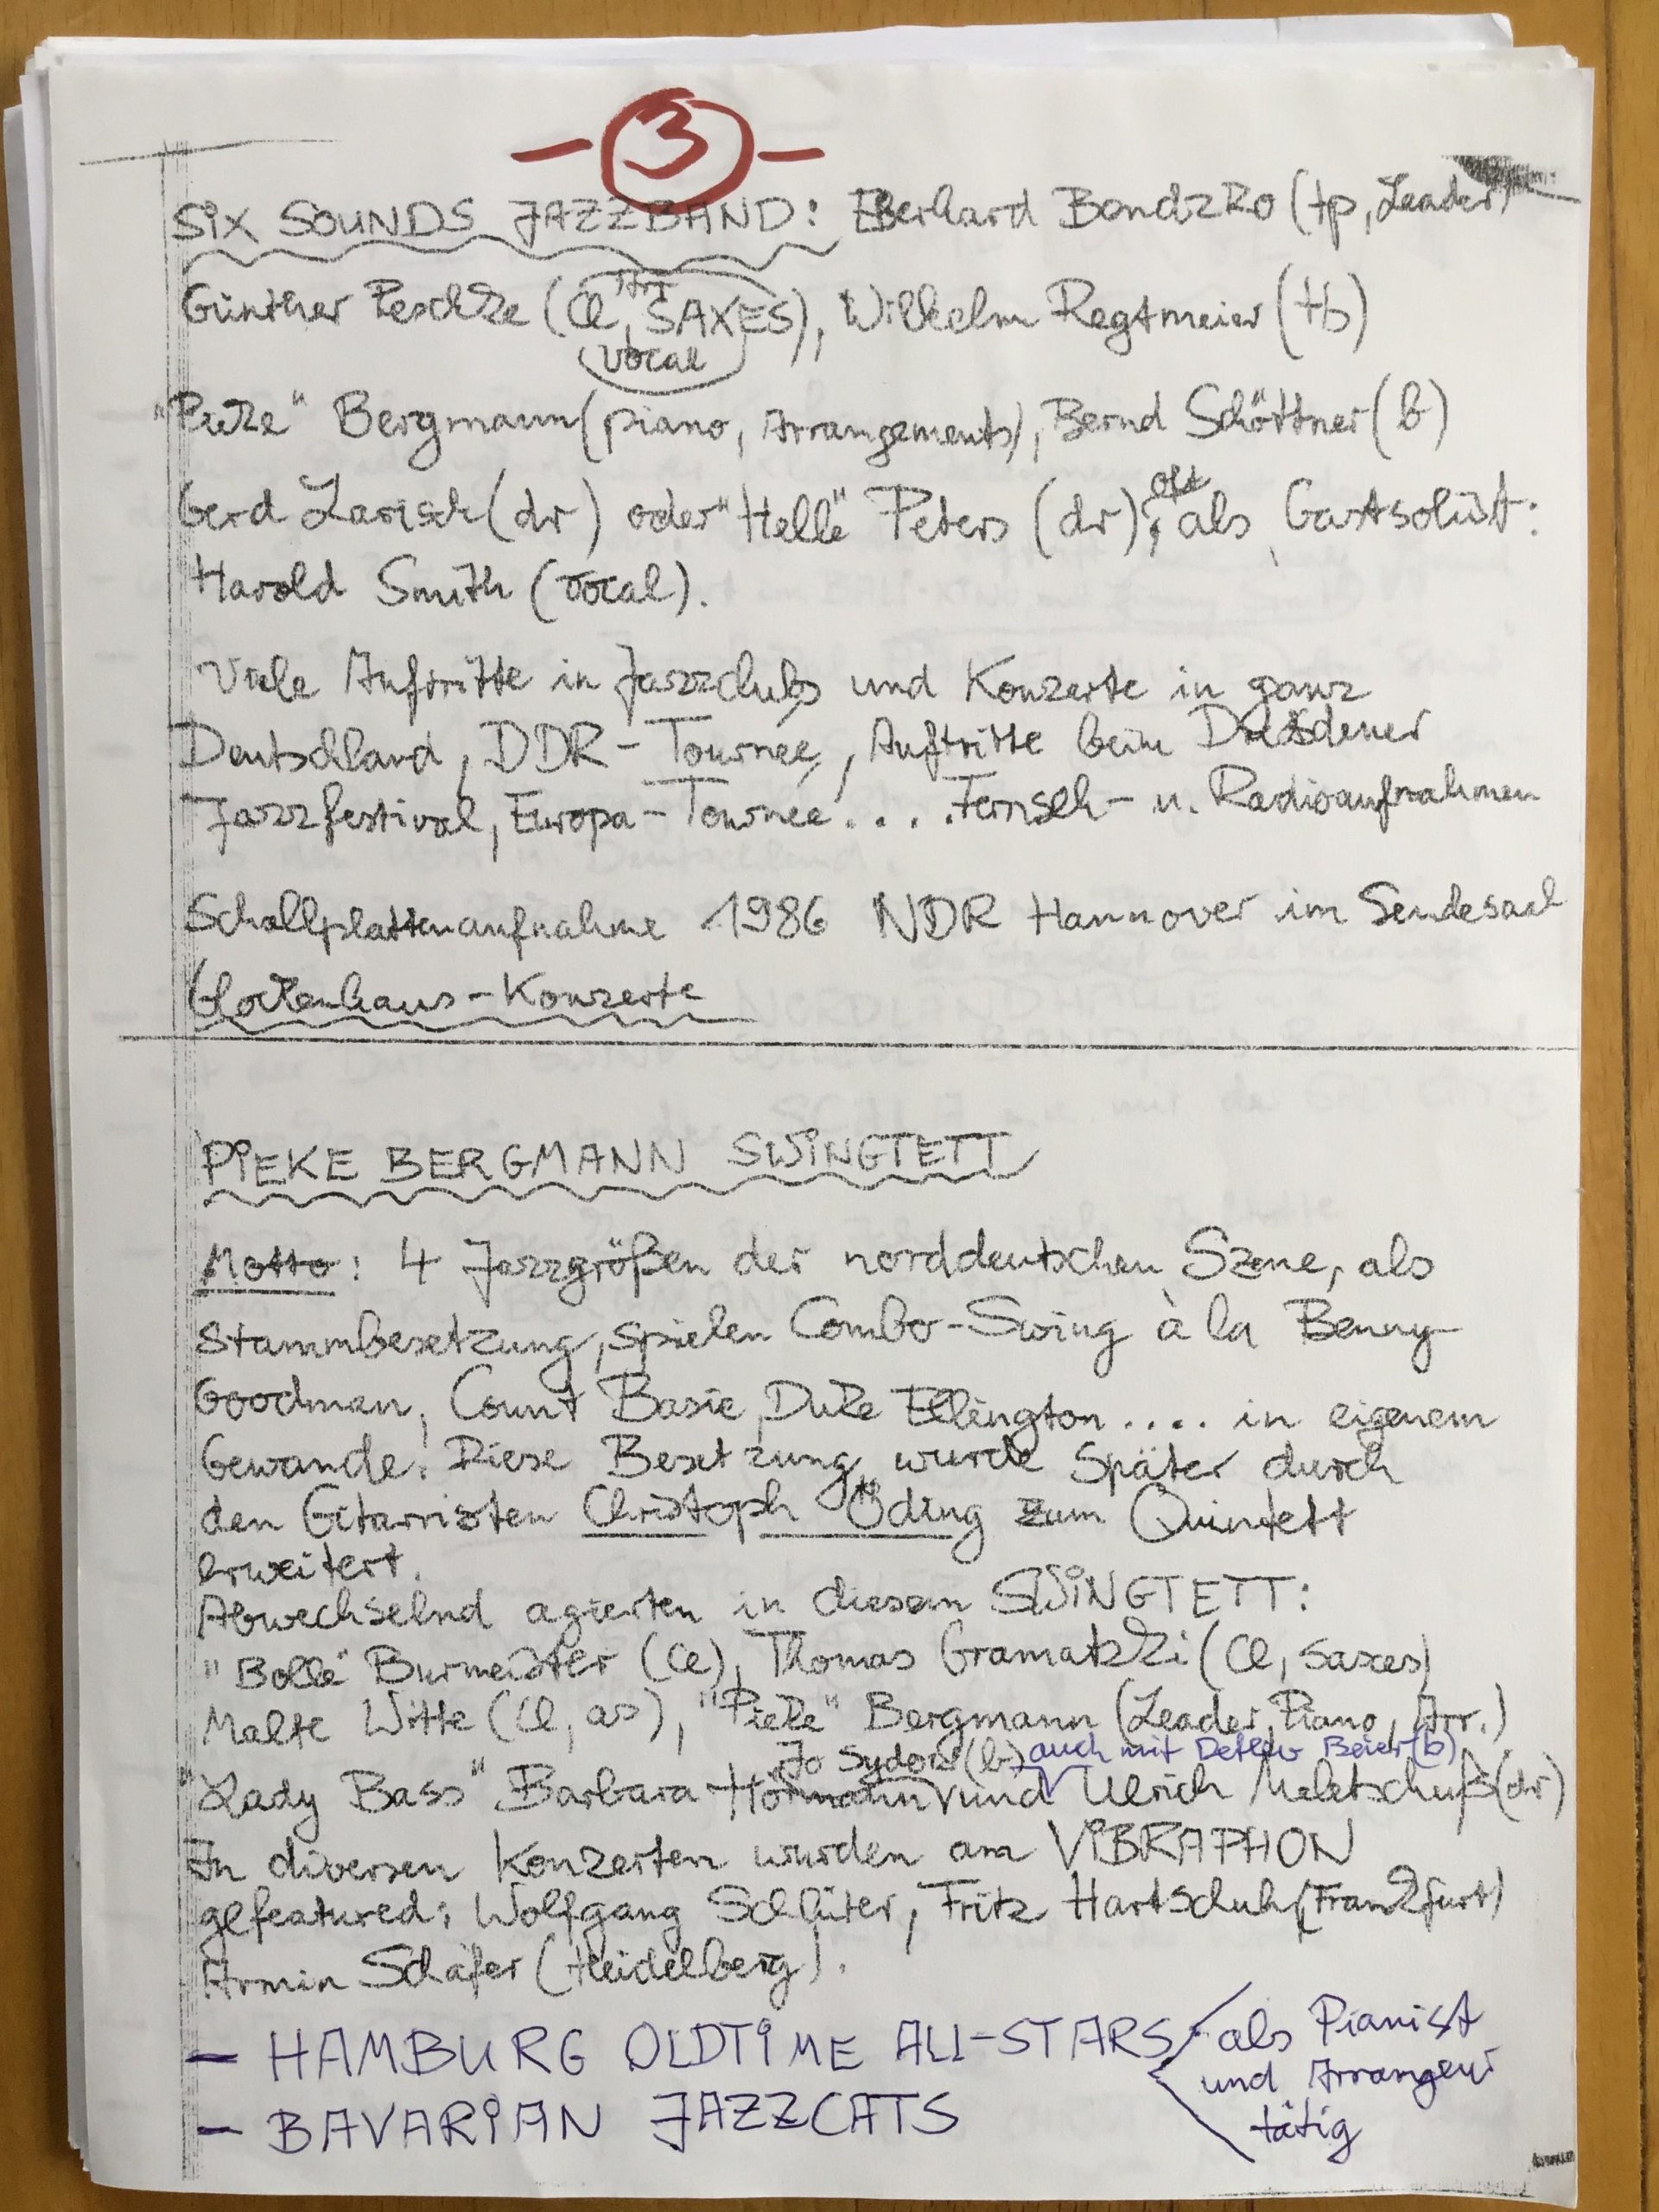 -3-
SIX SOUNDS JAZZBAND: Eberhard Bondzko (tp, Leader)
Günther Peschke (Cl, SAXES), Wilhelm Regtmeier (tb)
vocal
"Pieke" Bergmann (piano, Arrangements), Bernd Schöttner (b)
oft
Gerd Larisch (dr) oder "Helle" Peters (dr), als Gastsolist:
Harold Smith (vocal).
Viele Auftritte in Jazzclubs und Konzerte in ganz
Deutschland, DDR-Tournée, Auftritte beim Dresdener
Jazzfestival, Europa-Tournée.... Fernseh- u. Radioaufnahmen
Schallplattenaufnahme 1986 NDR Hannover im Sendesaal
Glockenhaus-Konzerte
PIEKE BERGMANN SWINGTETT
Motto: 4 Jazzgrößen der norddeutschen Szene, als
Stammbesetzung, spielen Combo-Swing à la Benny
Goodman, Count Basie, Duke Ellington.... in eigenem
Gewande. Diese Besetzung wurde später durch
den Gitarristen Christoph Öding zum Quintett
erweitert.
Abwechselnd agierten in diesem SWINGTETT:
"Bolle" Burmeister (Cl), Thomas Gramatzki (Cl, Saxes)
Malte Witte (Cl, as), "Pieke" Bergmann (Leader, Piano, Arr.)
Jo Sydow (b) auch mit Detlev Beier (b)
"Lady Bass" Barbara Hörmann und Ulrich Meletschuß (dr)
In diversen Konzerten wurden am VIBRAPHON
gefeatured: Wolfgang Schlüter, Fritz Hartschuh (Frankfurt)
Armin Schäfer (Heidelberg).
- HAMBURG OLDTIME ALL-STARS als Pianist
und Arrangeur
- BAVARIAN JAZZCATS tätig